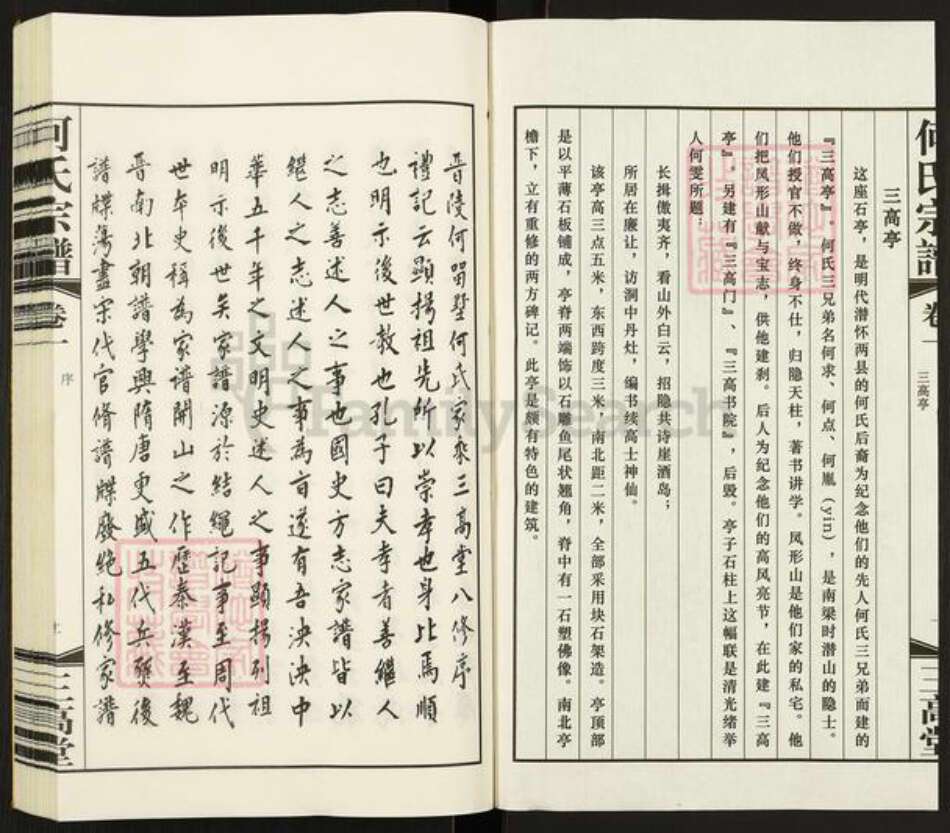 何氏宗譜
卷一
三高亭
三高堂
三高亭
这座石亭，是明代潜怀两县的何氏后裔为纪念他们的先人何氏三兄弟而建的
『三高亭』。何氏三兄弟名何求、何点、何胤（yin），是南梁时潜山的隐士。
他们授官不做，终身不仕，归隐天柱，著书讲学。凤形山是他们家的私宅。他
们把凤形山献与宝志，供他建刹。后人为纪念他们的高风亮节，在此建『三高
亭』，另建有『三高门』、『三高书院』，后毁。亭子石柱上这幅联是清光绪举
人何雯所题：
长揖傲夷齐，看山外白云，招隐共诗崖酒岛；
所居在廉让，访洞中丹灶，编书续高士神仙。
该亭高三点五米，东西跨度三米，南北距二米，全部采用块石架造。亭顶部
是以平薄石板铺成，亭脊两端饰以石雕鱼尾状翘角，脊中有一石塑佛像。南北亭
檐下，立有重修的两方碑记。此亭是颇有特色的建筑。
晋陵何留墅何氏家乘三高堂八修序
禮記云顯揚祖先所以崇孝也身比焉順
也明示後世教也孔子曰夫孝者善繼人
之志善述人之事也國史方志家譜皆以
繼人之志述人之事為旨遂有吾泱泱中
華五千年之文明史述人之事顯揚列祖
明示後世矣家譜源於結繩記事至周代
世本史稱為家譜開山之作歷秦漢至魏
晉南北朝譜學興隋唐更盛五代兵燹後
譜牒蕩盡宋代官修譜牒廢絕私修家譜
何氏宗譜
卷一
序
三高堂
FamilySearch